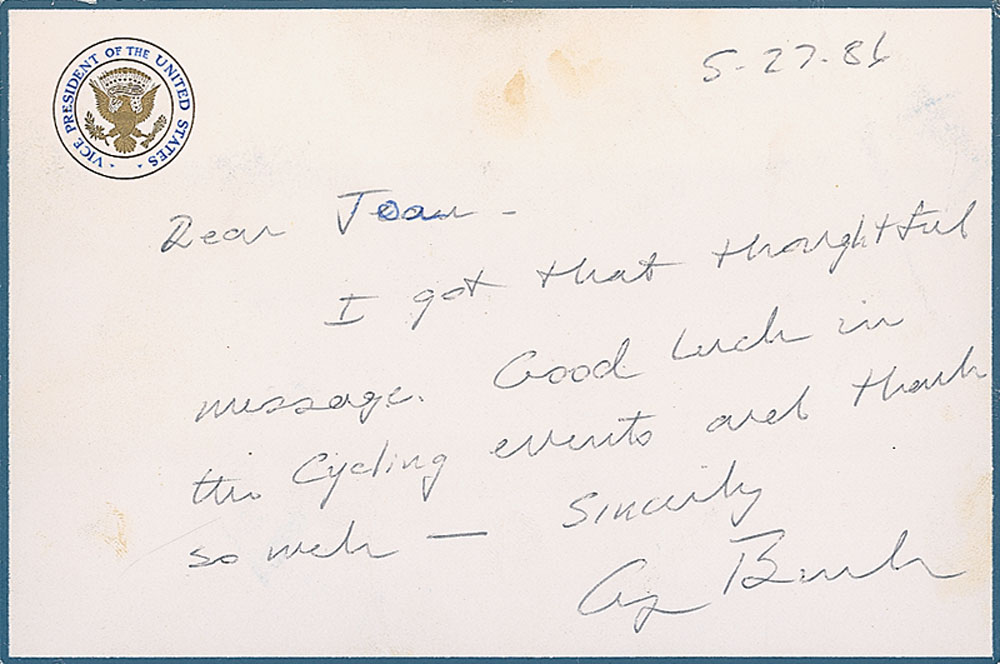 VICE PRESIDENT OF THE UNITED STATES
5-27-86
Dear Joan -
I got that thoughtful
message. Good luck in
the Cycling events and thank
so much — Sincerely
G Bush